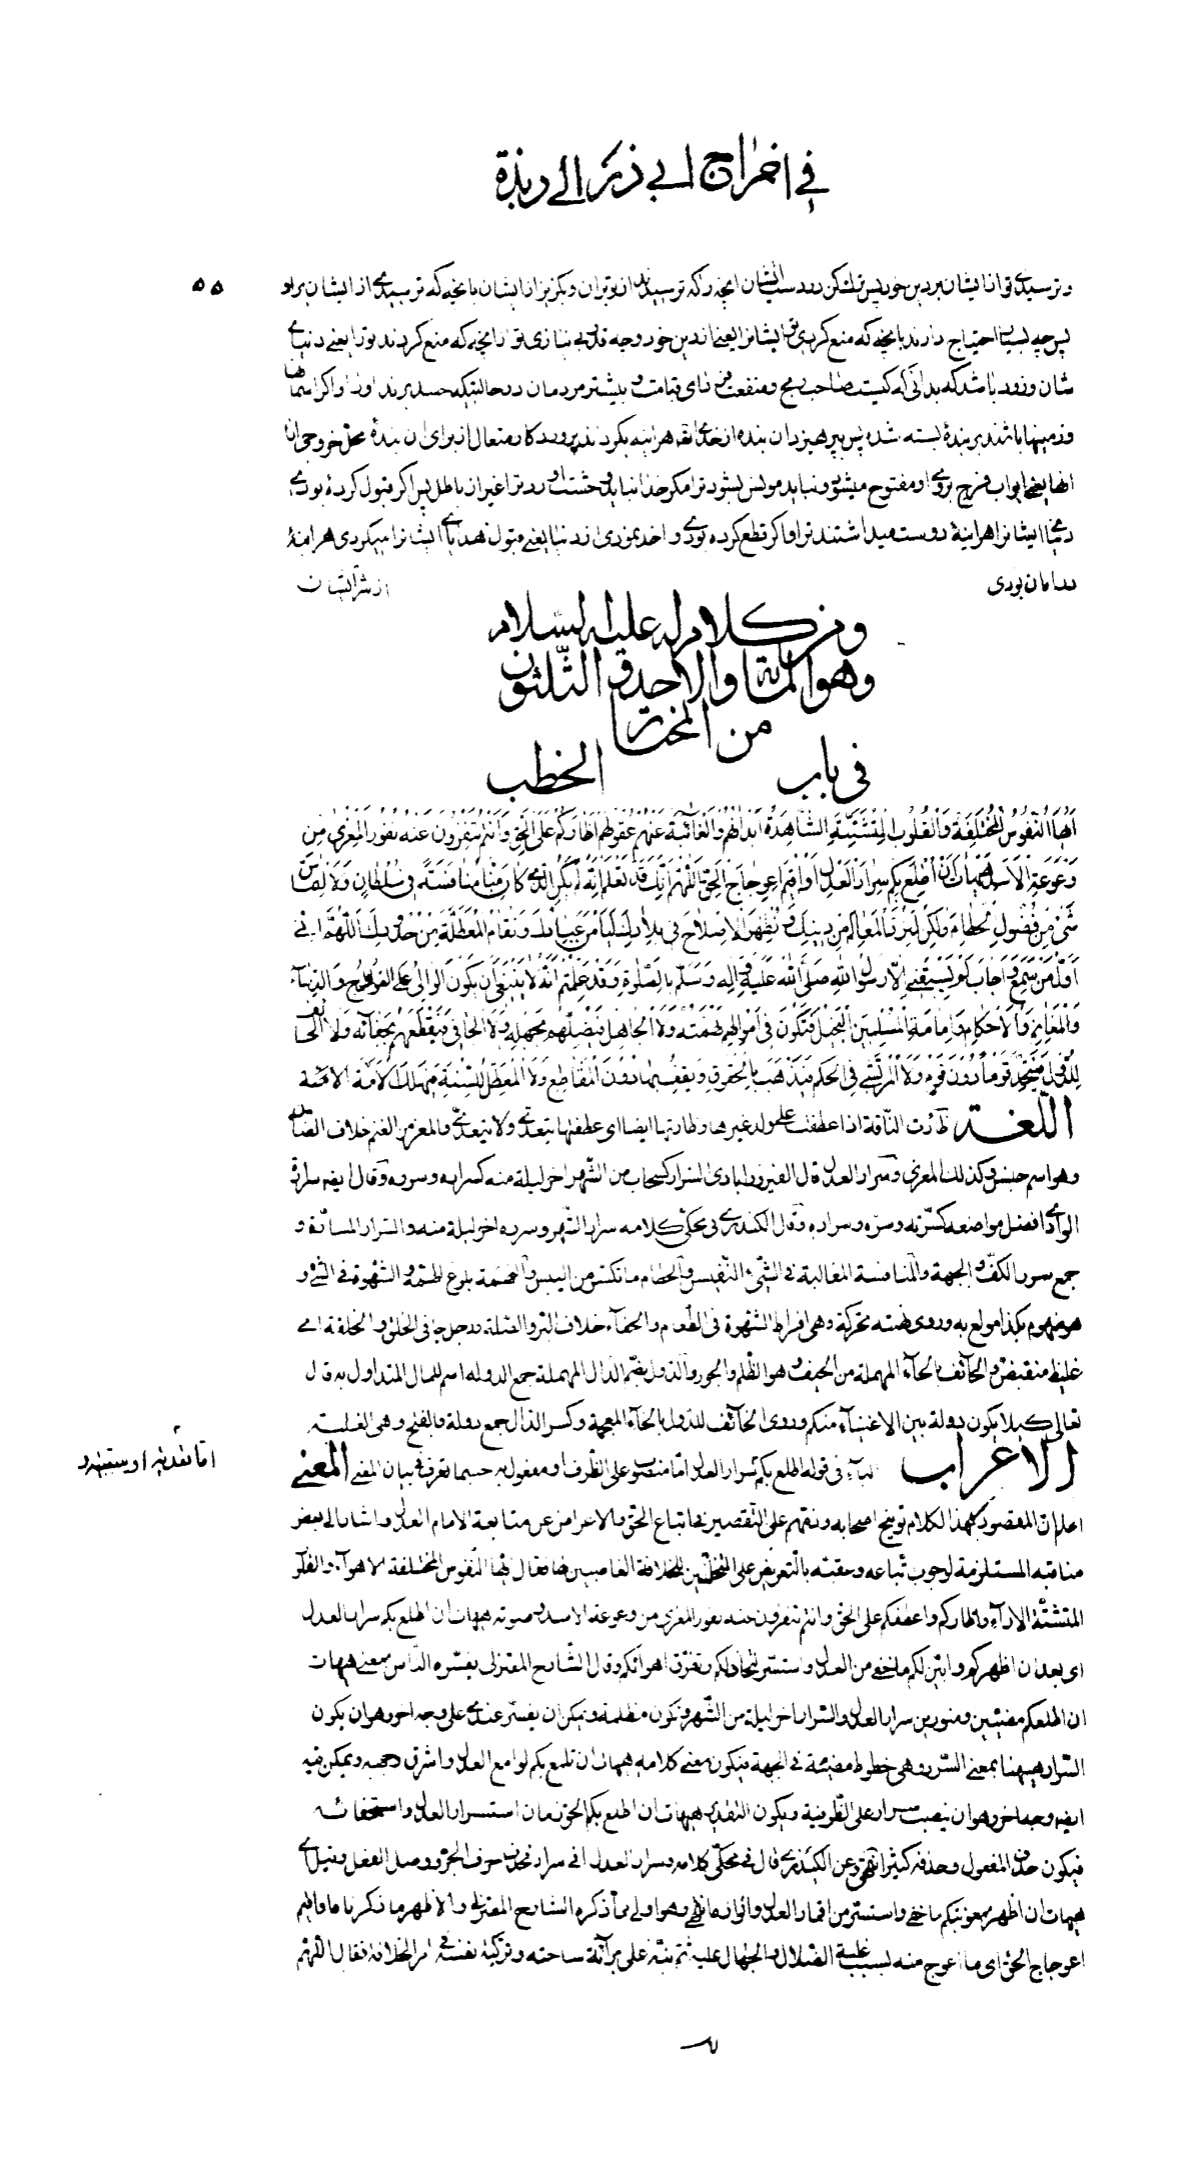 في اخراج ابي ذر الى ربذة
۵۵
و ترسیدی تو از ایشان بر دین خود پس ترك كن در دست ایشان انچه را كه ترسیدند از تو بران و بگریز از ایشان بانچه كه ترسیدی از ایشان براو
پس چه بسیار احتیاج دارند بانچه كه منع كردی تو ایشانرا یعنی از دین خود و چه قدر بی نیازی تو از انچه كه منع كردند تورا یعنی دنیای
شان و زود باشد كه بدانی كه كیست صاحب ربح و منفعت در فردای قیامت و بیشتر مردمان در حالتیكه حسد برند اورا و اگر اسمانها
و زمینها باشند بر بندهٔ بسته شده پس بپرهیزد ان بنده از خدای تعالی هر اینه بگرداند پروردگار متعال از برای ان بندهٔ محل خروجی از
انها یعنی ابواب فرج بروی او مفتوح میشود و نباید مونس بشود ترا مگر حق و نباید بوحشت اورد ترا غیر از باطل پس اگر قبول كردهٔ بودی
دنیای ایشانرا هر اینهٔ دوست میداشتند ترا و اگر قطع كرده بودی و اخذ نمودی از دنیا یعنی قبول هدایای ایشانرا میكردی هر اینهٔ
در امان بودی از شر ایشان
ومن كلام له عليه السلام
وهو المائة والاحد والثلثون
من المختار
في باب الخطب
اَيَّتُهَا النُّفُوسُ الْمُخْتَلِفَةُ وَالْقُلُوبُ الْمُتَشَتِّتَةُ الشَّاهِدَةُ اَبْدَانُهُمْ وَالْغَائِبَةُ عَنْهُمْ عُقُولُهُمْ اَظْأَرُكُمْ عَلَى الْحَقِّ وَاَنْتُمْ تَنْفِرُونَ عَنْهُ نُفُورَ الْمِعْزىٰ مِنْ
وَعْوَعَةِ الْاَسَدِ هَيْهَاتَ اَنْ اَطْلَعَ بِكُمْ سِرَارَ الْعَدْلِ اَوْ اُقِيمَ اعْوِجَاجَ الْحَقِّ اَللّٰهُمَّ اِنَّكَ قَدْ تَعْلَمُ اَنَّهُ لَمْ يَكُنِ الَّذِي كَانَ مِنَّا مُنَافَسَةً فِي سُلْطَانٍ وَلَا الْتِمَاسَ
شَيْءٍ مِنْ فُضُولِ الْحُطَامِ وَلٰكِنْ لِنَرُدَّ الْمَعَالِمَ مِنْ دِينِكَ وَنُظْهِرَ الْاِصْلَاحَ فِي بِلَادِكَ فَيَأْمَنَ الْمَظْلُومُونَ مِنْ عِبَادِكَ وَتُقَامَ الْمُعَطَّلَةُ مِنْ حُدُودِكَ اَللّٰهُمَّ اِنِّي
اَوَّلُ مَنْ اَنَابَ وَسَمِعَ وَاَجَابَ لَمْ يَسْبِقْنِي اِلَّا رَسُولُ اللّٰهِ صَلَّى اللّٰهُ عَلَيْهِ وَاٰلِهِ وَسَلَّمَ بِالصَّلٰوةِ وَقَدْ عَلِمْتُمْ اَنَّهُ لَا يَنْبَغِي اَنْ يَكُونَ الْوَالِي عَلَى الْفُرُوجِ وَالدِّمَاءِ
وَالْمَغَانِمِ وَالْاَحْكَامِ وَاِمَامَةِ الْمُسْلِمِينَ الْبَخِيلُ فَتَكُونَ فِي اَمْوَالِهِمْ نَهْمَتُهُ وَلَا الْجَاهِلُ فَيُضِلَّهُمْ بِجَهْلِهِ وَلَا الْجَافِي فَيَقْطَعَهُمْ بِجَفَائِهِ وَلَا الْحَائِفُ
لِلدُّوَلِ فَيَتَّخِذَ قَوْماً دُونَ قَوْمٍ وَلَا الْمُرْتَشِي فِي الْحُكْمِ فَيَذْهَبَ بِالْحُقُوقِ وَيَقِفَ بِهَا دُونَ الْمَقَاطِعِ وَلَا الْمُعَطِّلُ لِلسُّنَّةِ فَيُهْلِكَ الْاُمَّةَ
اللغة ظأرت الناقة اذا عطفت على ولد غيرها وظأرتها ايضا اى عطفتها يتعدى ولا يتعدى والمعز من الغنم خلاف الضان
وهو اسم جنس وكذلك المعزى وسرار العدل قال الفيروزابادى السرار كسحاب من الشهر اخر ليلة منه كسراره وسرره وقال ايضا سرارة
الوادى افضل مواضعه كسرته وسره وسراره وقال الكيدرى فى محكى كلامه سرار الشهر وسرره اخر ليلة منه والسرار المسارة و
جمع سرر الكف والجبهة والمنافسة المغالبة فى الشىء النفيس والحطام ما تكسر من اليبس والنهمة بلوغ الهمة والشهوة فى الشىء و
هو منهوم بكذا مولع به وروى نهمته محركة وهى افراط الشهوة فى الطعام والجفاء خلاف البر والصلة ورجل جافى الخلق والخلقة اى
غليظ منقبض والحائف بالحاء المهملة من الحيف وهو الظلم والجور والدول بضم الدال المهملة جمع الدولة اسم للمال المتداول به قال
تعالى كيلا يكون دولة بين الاغنياء منكم وروى الخائف للدول بالخاء المعجمة وكسر الدال جمع دولة بالفتح وهى الغلبة
الاعراب الباء فى قوله اطلع بكم سرار العدل اما منصوب على الظرف او مفعول به حسبما تعرفه فى بيان المعنى المعنى
اعلم ان المقصود بهذا الكلام توبيخ اصحابه وذمهم على التقصير فى اتباع الحق والاعراض عن متابعة الامام العدل واشار الى بعض
مناقبه المستلزمة لوجوب اتباعه وعقبه بالتعريض على المنتحلين للخلافة الغاصبين لها فقال ايتها النفوس المختلفة الاهواء والقلوب
المتشتتة الاراء اظأركم واعطفكم على الحق وانتم تنفرون عنه نفور المعزى من وعوعة الاسد وصوته هيهات ان اطلع بكم سرار العدل
اى بعد ان اظهر بكم وابين لكم ما خفى من العدل واستسر لتخاذلكم وتفرق اهوائكم وقال الشارح المعتزلى يفسره الناس بمعنى هيهات
ان اطلعكم مضيئين ومنورين سرار العدل والسرار اخر ليلة من الشهر وتكون مظلمة ويمكن ان يفسر عندى على وجه اخر وهو ان يكون
السرار هيهنا بمعنى السرر وهى خطوط مضيئة فى الجبهة فيكون معنى كلامه هيهات ان تلمع بكم لوامع العدل واشرق وجهه ويمكن فيه
ايضا وجه اخر وهو ان ينصب سرار على الظرفية ويكون التقدير هيهات ان اطلع بكم الحق زمان استسرار العدل واستخفائه
فيكون حذف المفعول وحذفه كثير انتهى وعن الكيدرى قال فى محكى كلامه وسرار العدل اى فى سرار فحذف حرف الجر ووصل الفعل وقيل اى
هيهات ان اظهر بمعونتكم ما خفى واستسر من اقمار العدل وانواره وهو اولى مما ذكره الشارح المعتزلى والاظهر ما ذكرناه او اقيم
اعوجاج الحق اى ما اعوج منه بسبب غلبة الضلال والجهال عليه ثم نبه على برائة ساحته وتزكية نفسه فى امر الخلافة فقال اللهم